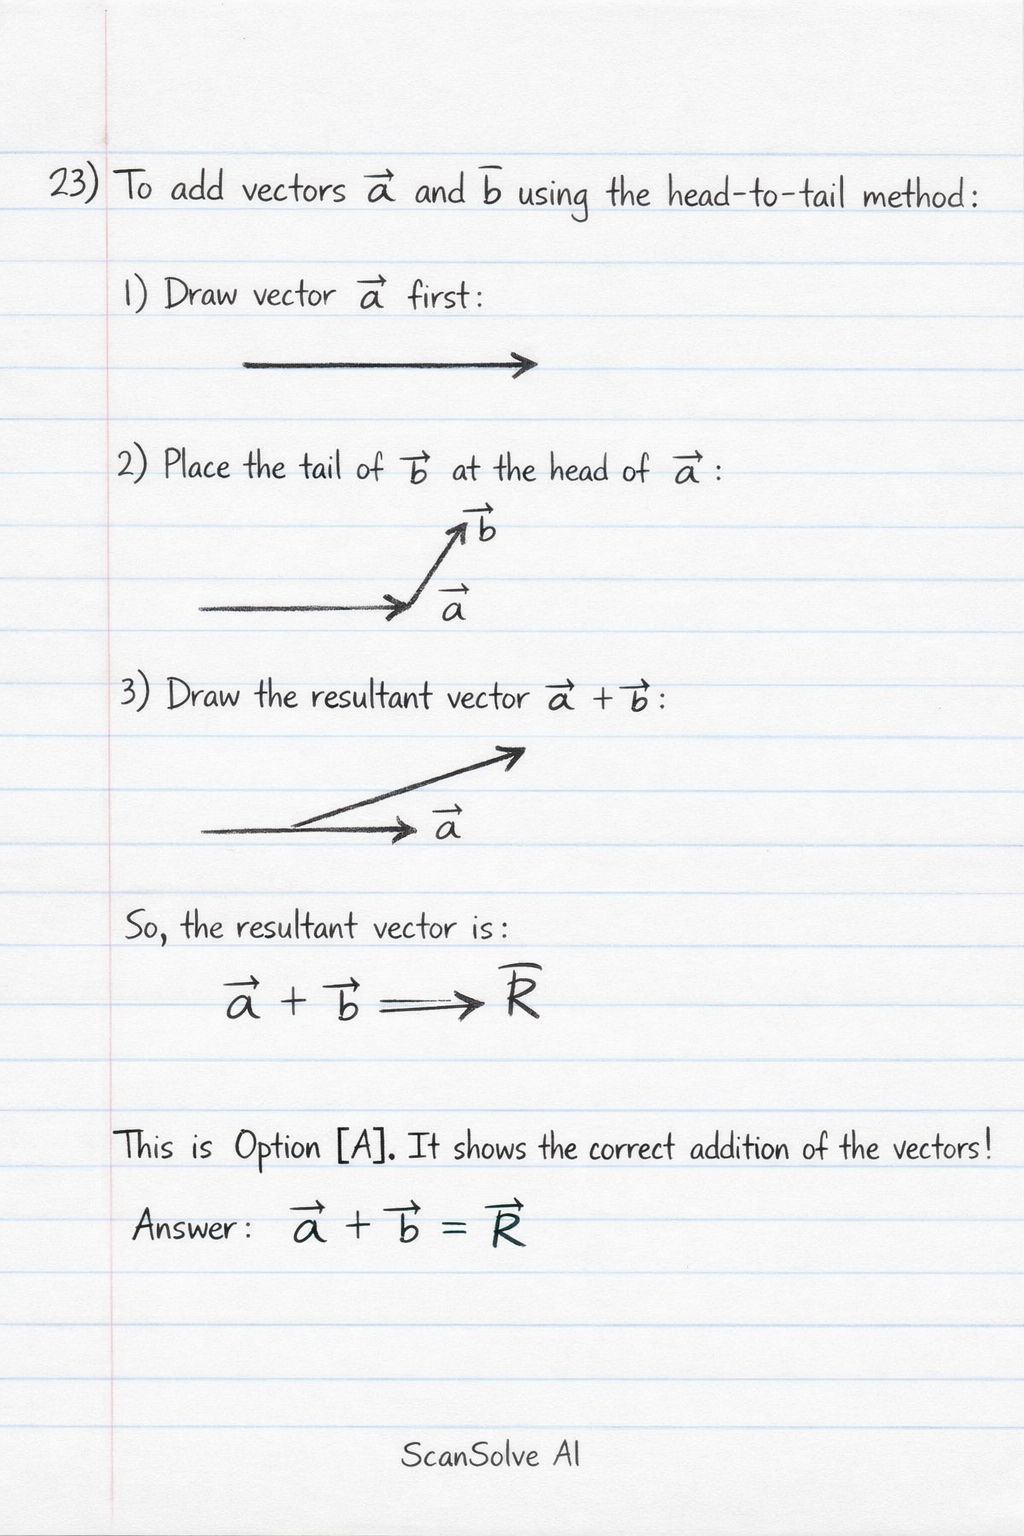 23) To add vectors a⃗ and b̅ using the head-to-tail method:
1) Draw vector a⃗ first:
2) Place the tail of b⃗ at the head of a⃗ :
b⃗
a⃗
3) Draw the resultant vector a⃗ + b⃗ :
a⃗
So, the resultant vector is:
a⃗ + b⃗ ⟹ R̅
This is Option [A]. It shows the correct addition of the vectors!
Answer: a⃗ + b⃗ = R⃗
ScanSolve AI